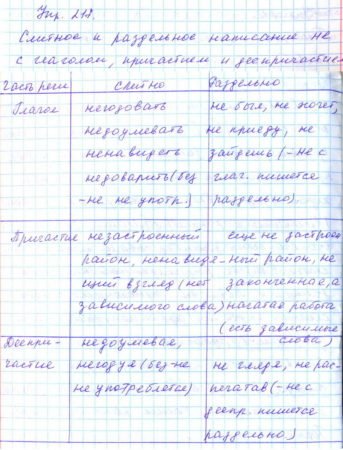 Упр. 217.
Слитное и раздельное написание не
с глаголом, причастием и деепричастием
Часть речи слитно Раздельно
Глагол негодовать не был, не хочет,
недоумевать не приеду, не
ненавидеть зайдёшь (-не с
недоварить (без глаг. пишется
-не не употр.) раздельно).
Причастие незастроенный еще не застроен-
район, ненавидя- ный район, не
щий взгляд (нет законченная, а
зависимого слова) начатая работа
(есть зависимые
слова)
Деепри- недоумевая,
частие негодуя (без -не не глядя, не рас-
не употребляется) печатав (-не с
деепр. пишется
раздельно)